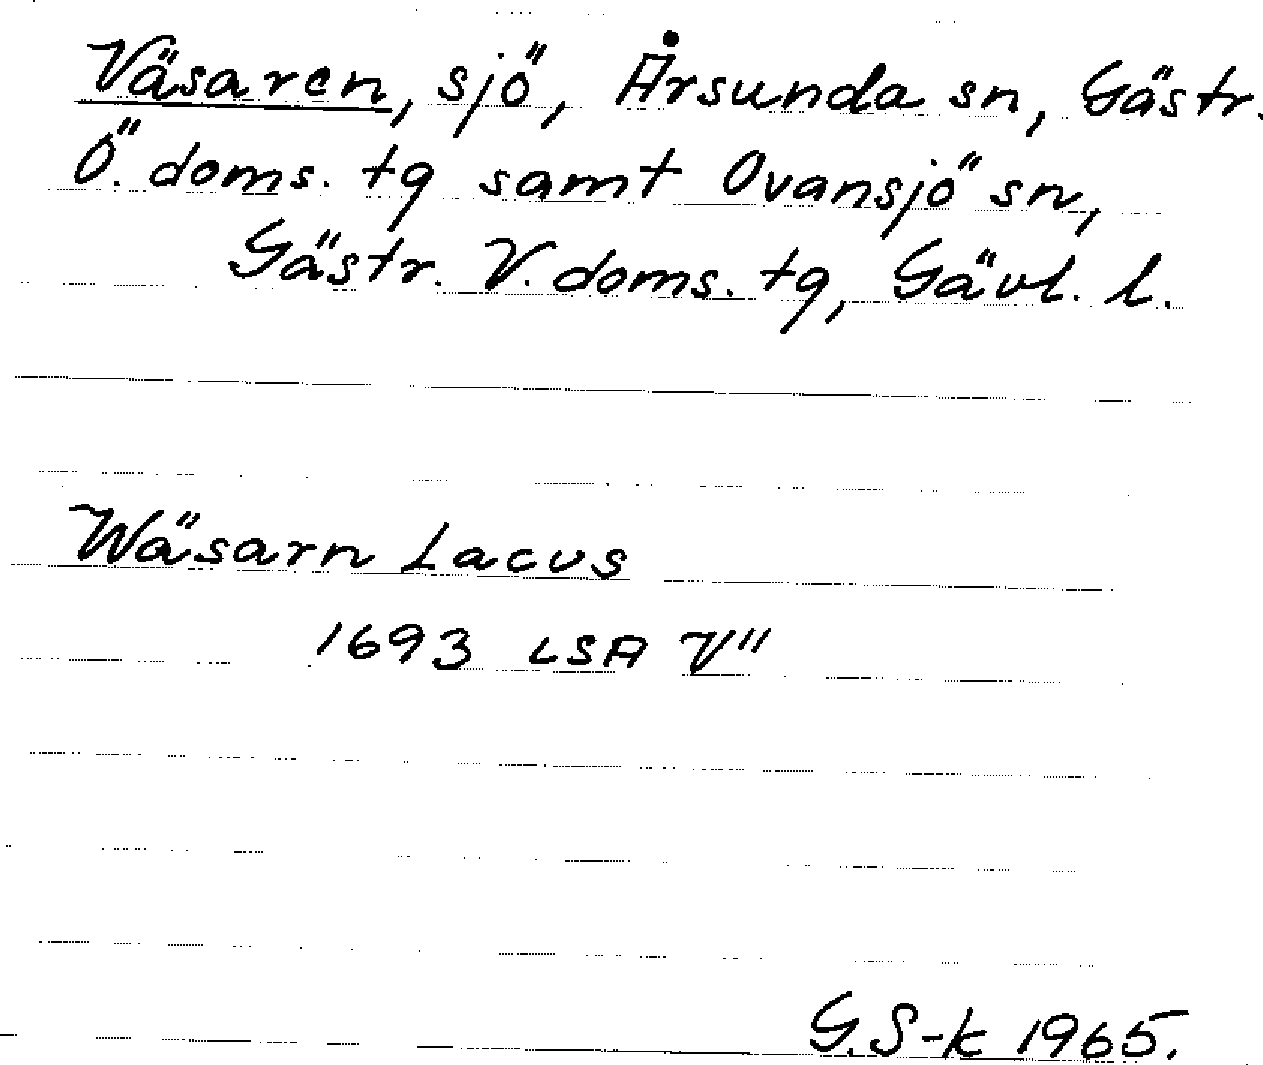 Väsaren, sjö, Årsunda sn, Gästr.
Ö. doms. tg samt Ovansjö sn,
Gästr. V. doms. tg, Gävl. l.
Wäsarn Lacus
1693 LSA V"
G. S-k 1965.